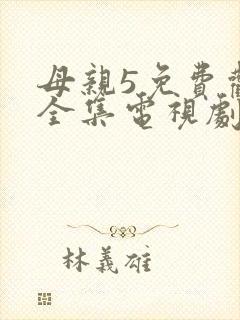 母親5免費
全集電視劇
林義雄